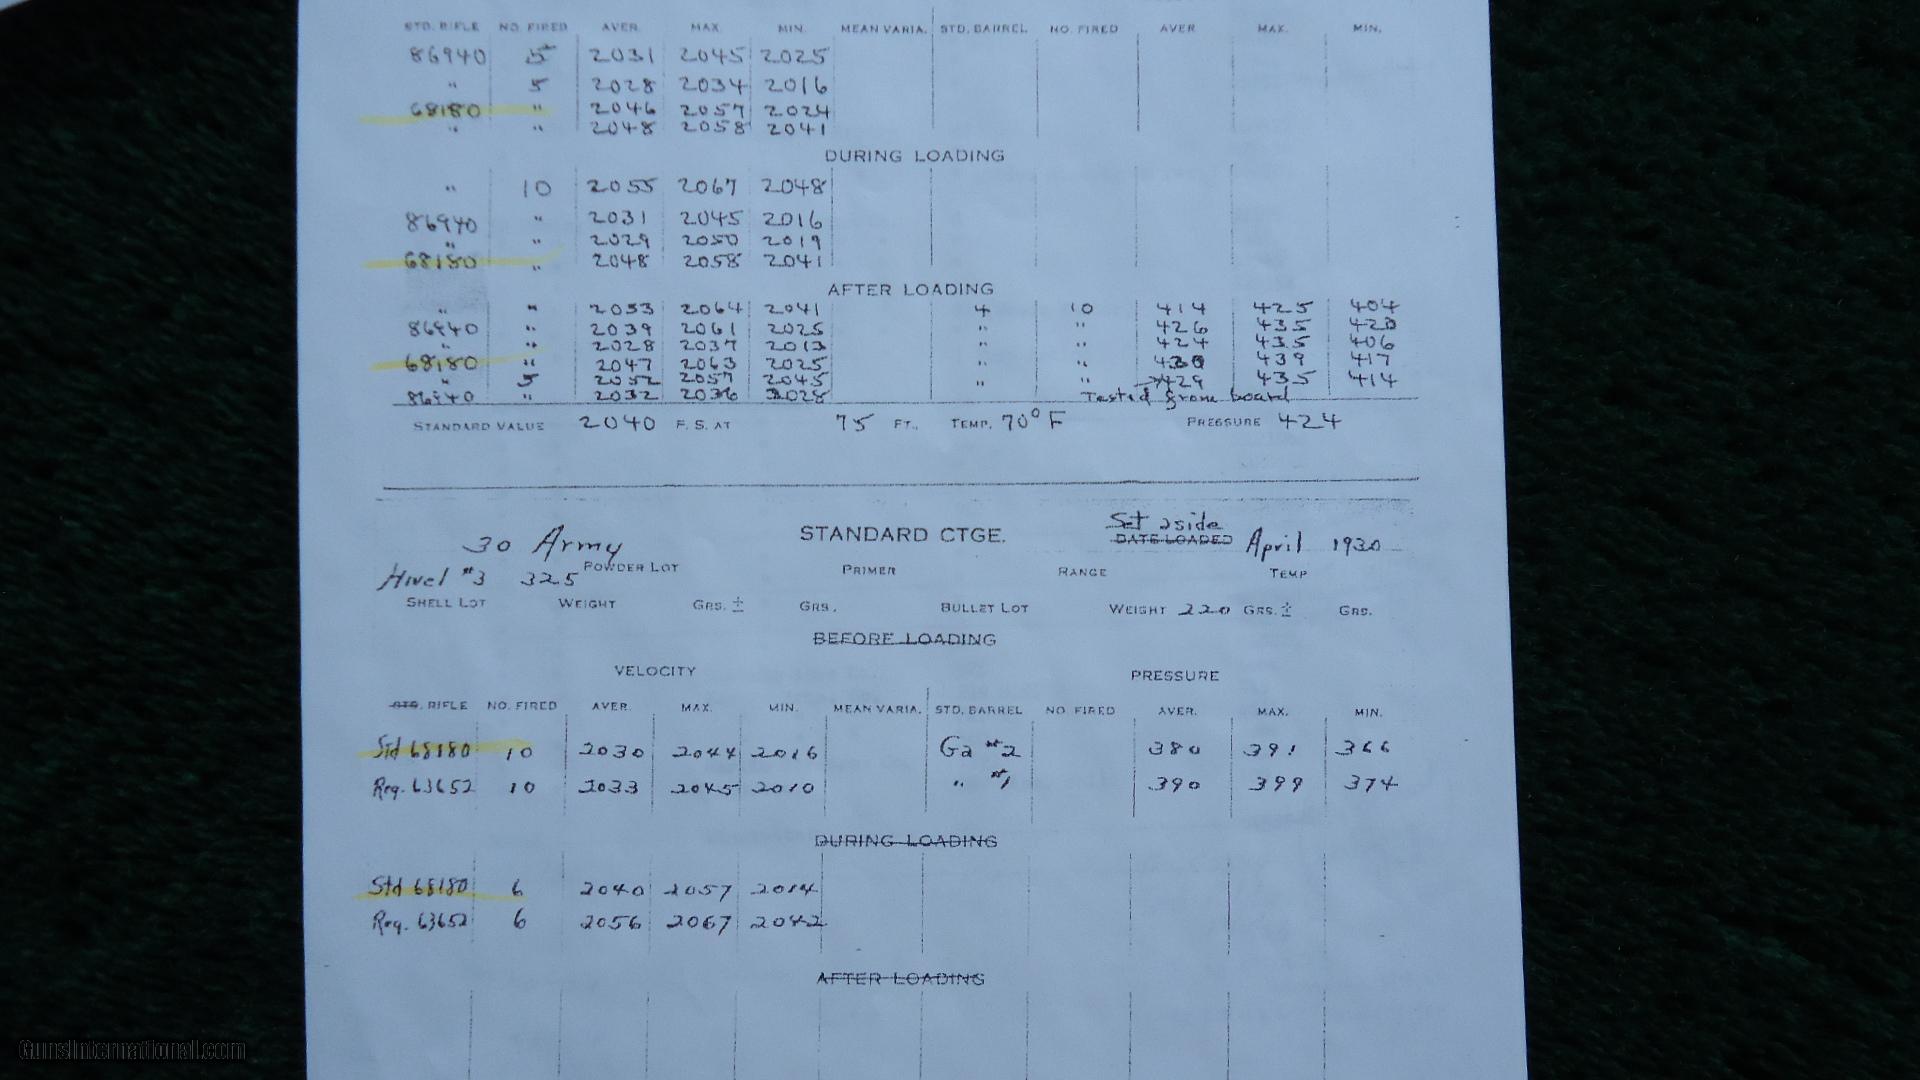 STD. RIFLE NO. FIRED AVER. MAX. MIN. MEAN VARIA. STD. BARREL NO. FIRED AVER MAX. MIN.
86940 5 2031 2045 2025
" 5 2028 2034 2016
68180 " 2046 2057 2024
" " 2048 2058 2041
DURING LOADING
" 10 2055 2067 2048
86940 " 2031 2045 2016
" " 2029 2050 2019
68180 " 2048 2058 2041
AFTER LOADING
" " 2053 2064 2041 4 10 414 425 404
86940 " 2039 2061 2025 " " 426 435 420
" " 2028 2037 2013 " " 424 435 406
68180 " 2047 2063 2025 " " 430 439 417
" 5 2052 2057 2045 " " 429 435 414
86940 " 2032 2036 2028 Tested from board
STANDARD VALUE 2040 F. S. AT 75 FT., TEMP. 70° F PRESSURE 424
30 Army STANDARD CTGE. Set aside
DATE LOADED April 1930
Hivel #3 325 POWDER LOT PRIMER RANGE TEMP
SHELL LOT WEIGHT GRS. ± GRS. BULLET LOT WEIGHT 220 GRS. ± GRS.
BEFORE LOADING
VELOCITY PRESSURE
STD. RIFLE NO. FIRED AVER. MAX. MIN. MEAN VARIA. STD. BARREL NO. FIRED AVER. MAX. MIN.
Std 68180 10 2030 2044 2016 Ga #2 380 391 366
Reg. 63652 10 2033 2045 2010 " #1 390 399 374
DURING LOADING
Std 68180 6 2040 2057 2014
Reg. 63652 6 2056 2067 2042
AFTER LOADING
GunsInternational.com